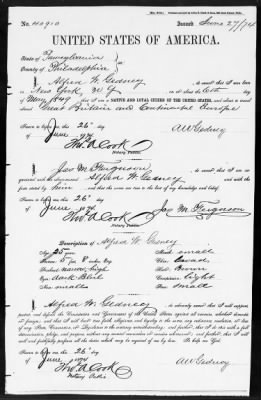 No. 40910 Issued June 27/74
UNITED STATES OF AMERICA.
State of Pennsylvania
County of Philadelphia
I, Alfred W. Gedney do swear that I was born in
New York, N Y on the 16th day of
May, 1849; that I am a NATIVE AND LOYAL CITIZEN OF THE UNITED STATES, and about to travel
abroad Great Britain and Continental Europe
Sworn to before me, this 26th day
of June 1874 A W Gedney
Thos. D. Cook
Notary Public.
I, Jas M. Ferguson do swear that I am acquainted
with the above-named Alfred W. Gedney and with the facts
stated by him and that the same are true to the best of my knowledge and belief.
Sworn to before me, this 26th day
of June 1874
Thos. D. Cook Jas M. Ferguson
Notary Public.
Description of Alfred W. Gedney
Age: 25 years Mouth: small
Stature: 5 feet 8 inches, Eng. Chin: broad
Forehead: high Hair: Brown
Eyes: dark Blue Complexion: light
Nose: small Face: small
I, Alfred W. Gedney do solemnly swear that I will support,
protect, and defend the Constitution and Government of the United States against all enemies, whether domestic
or foreign; and that I will bear true faith, allegiance, and loyalty to the same, any ordinance, resolution, or law
of any State, Convention, or Legislature to the contrary notwithstanding; and further, that I do this with a full
determination, pledge, and purpose, without any mental reservation or evasion whatsoever; and, further,
that I will well and faithfully perform all the duties which may be required of me by law. So help me God.
Sworn to before me, this 26th day
of June 1874 A W Gedney
Thos. D. Cook
Notary Public